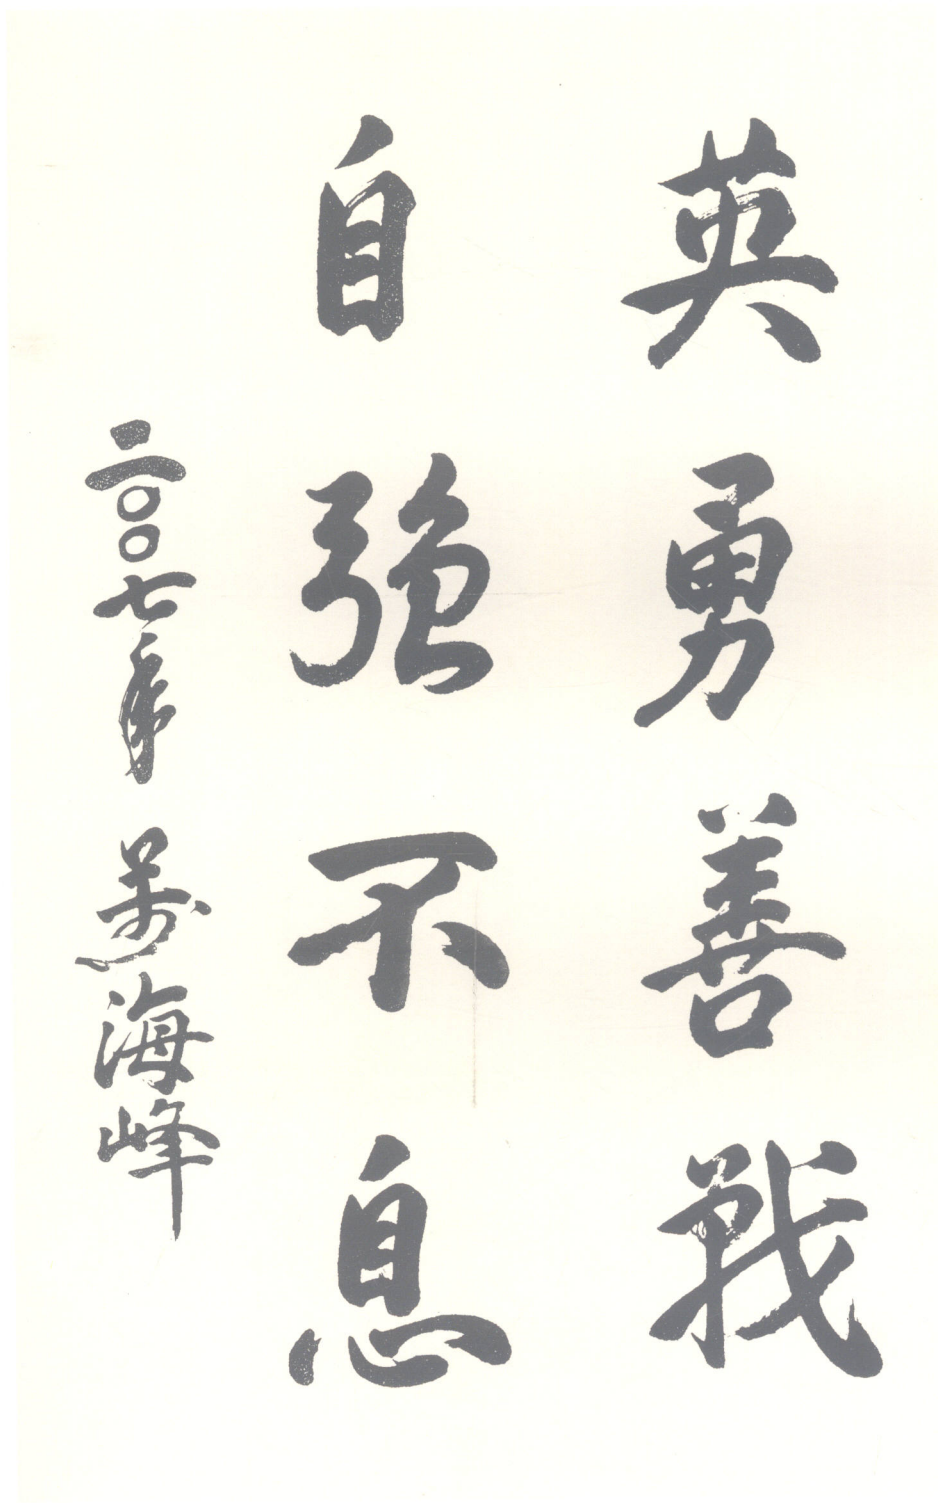 英勇善戰
自強不息
二〇〇七年 萬海峰